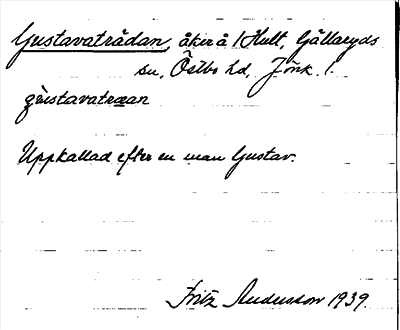 Gustavatrådan, åker å 1 Hult, Gällaryds
sn, Östbo hd, Jönk. l.
gùstavatræan
Uppkallad efter en man Gustav.
Fritz Andersson 1939.